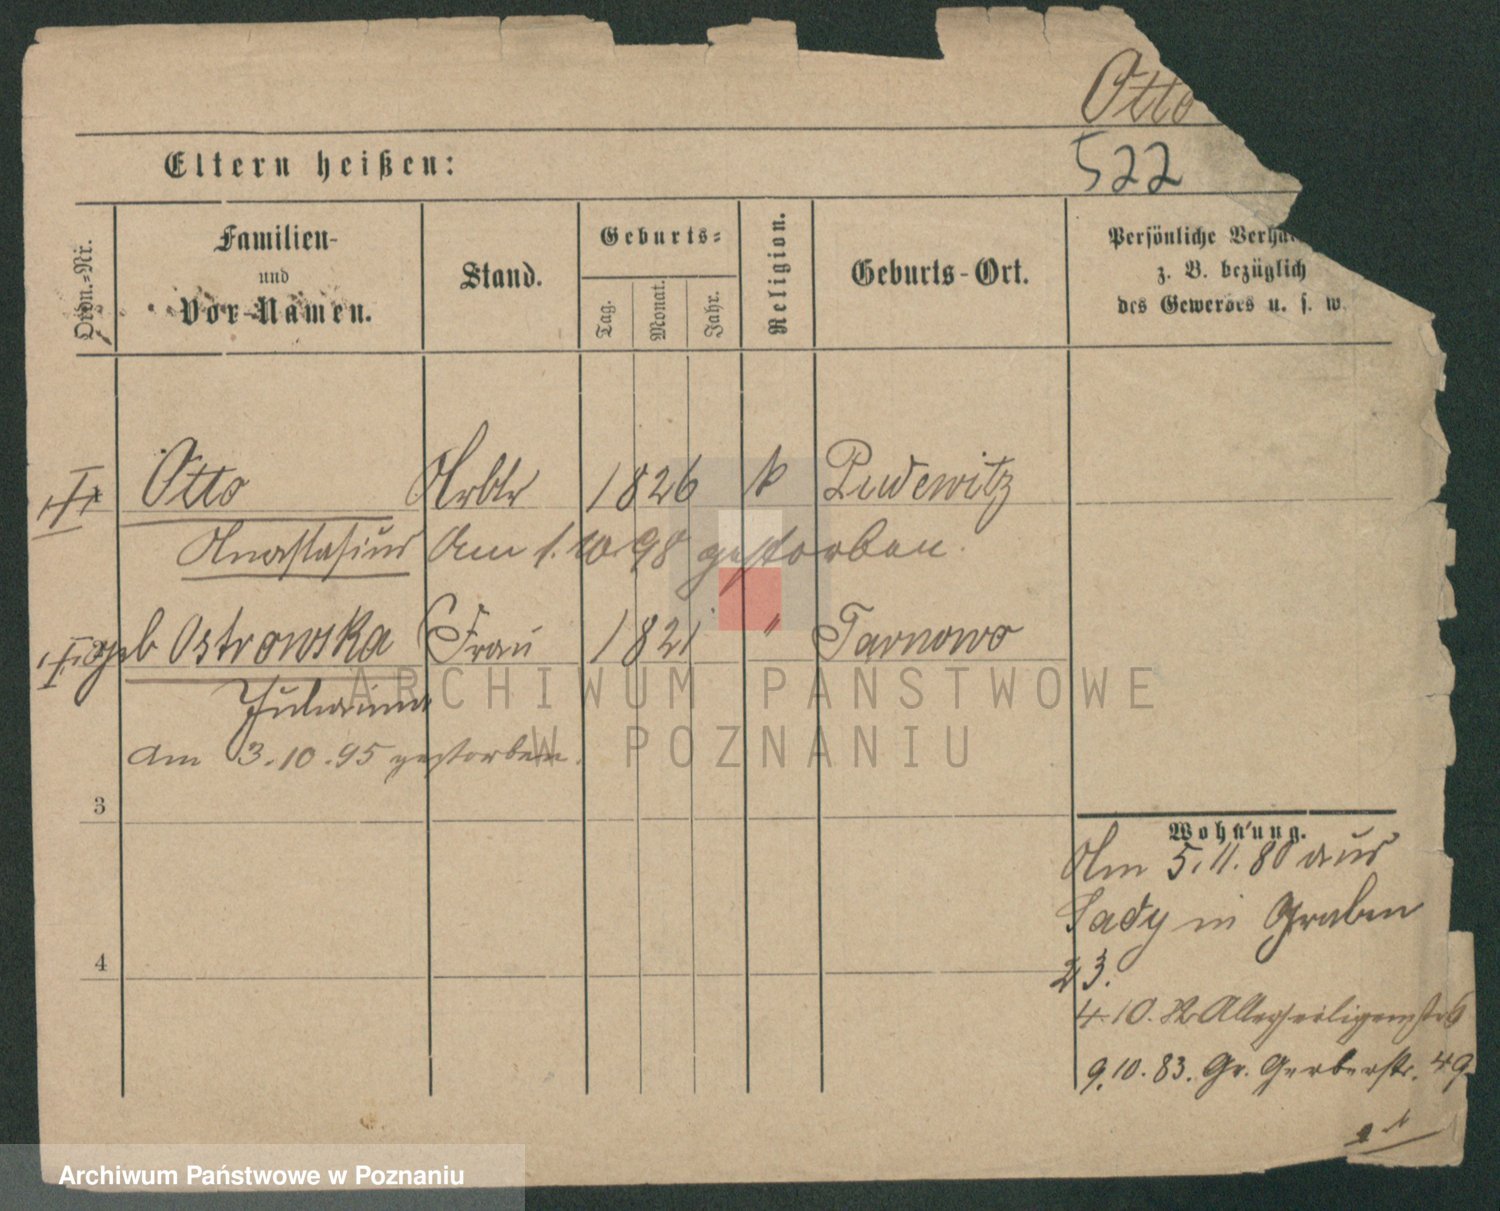 Otto
522
Eltern heißen:
Ordn.-Nr.
Familien-
und
Vor-Namen.
Stand.
Geburts-
Tag.
Monat.
Jahr.
Religion.
Geburts-Ort.
Persönliche
z. B. bezüglich
des Gewerbes u. s. w.
I Otto Arbtr 1826 k Pudewitz
Anastasius Am 1.10.98 gestorben.
II geb Ostrowska Frau 1821 " Tarnowo
Julianna
am 3.10.95 gestorben.
3
4
Wohnung.
Am 5.11.80 aus
Sady in Graben
23.
4.10.82 Allerheiligenstr 6
9.10.83. Gr. Gerberstr. 49
ARCHIWUM PAŃSTWOWE
W POZNANIU
Archiwum Państwowe w Poznaniu